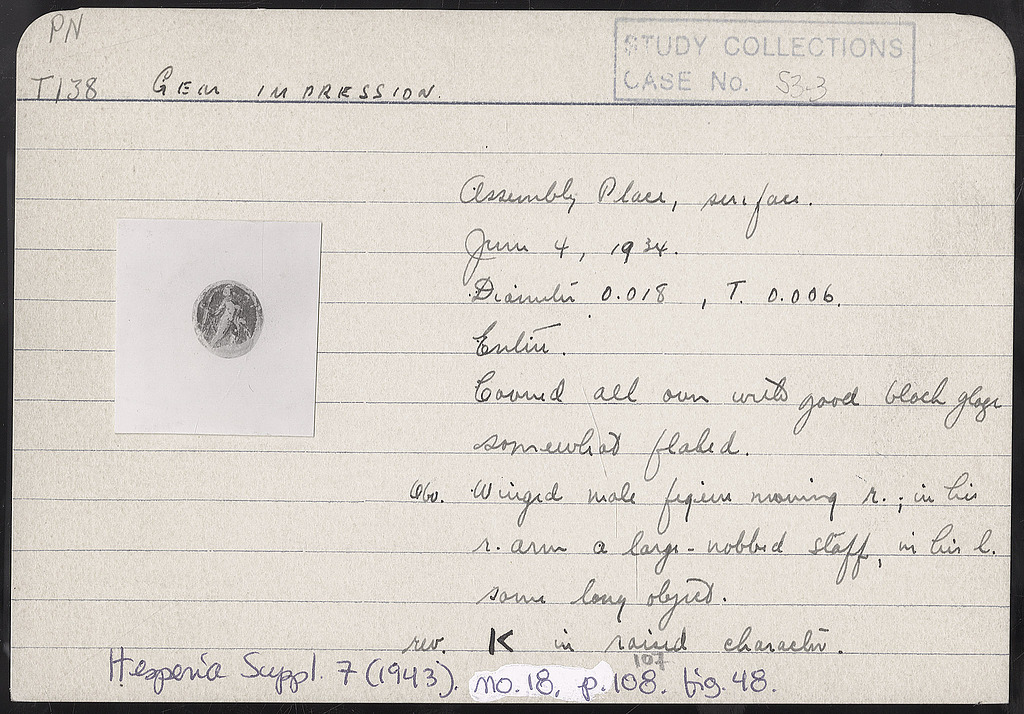 PN
STUDY COLLECTIONS
CASE No. S3-3
T138 GEM IMPRESSION.
Assembly Place, surface.
June 4, 1934.
Diameter 0.018, T. 0.006.
Entire.
Covered all over with good black glaze
somewhat flaked.
Obv. Winged male figure moving r.; in his
r. arm a large-nobbed staff, in his l.
some long object.
rev. K in raised character.
107
Hesperia Suppl. 7 (1943). no. 18, p. 108. fig. 48.